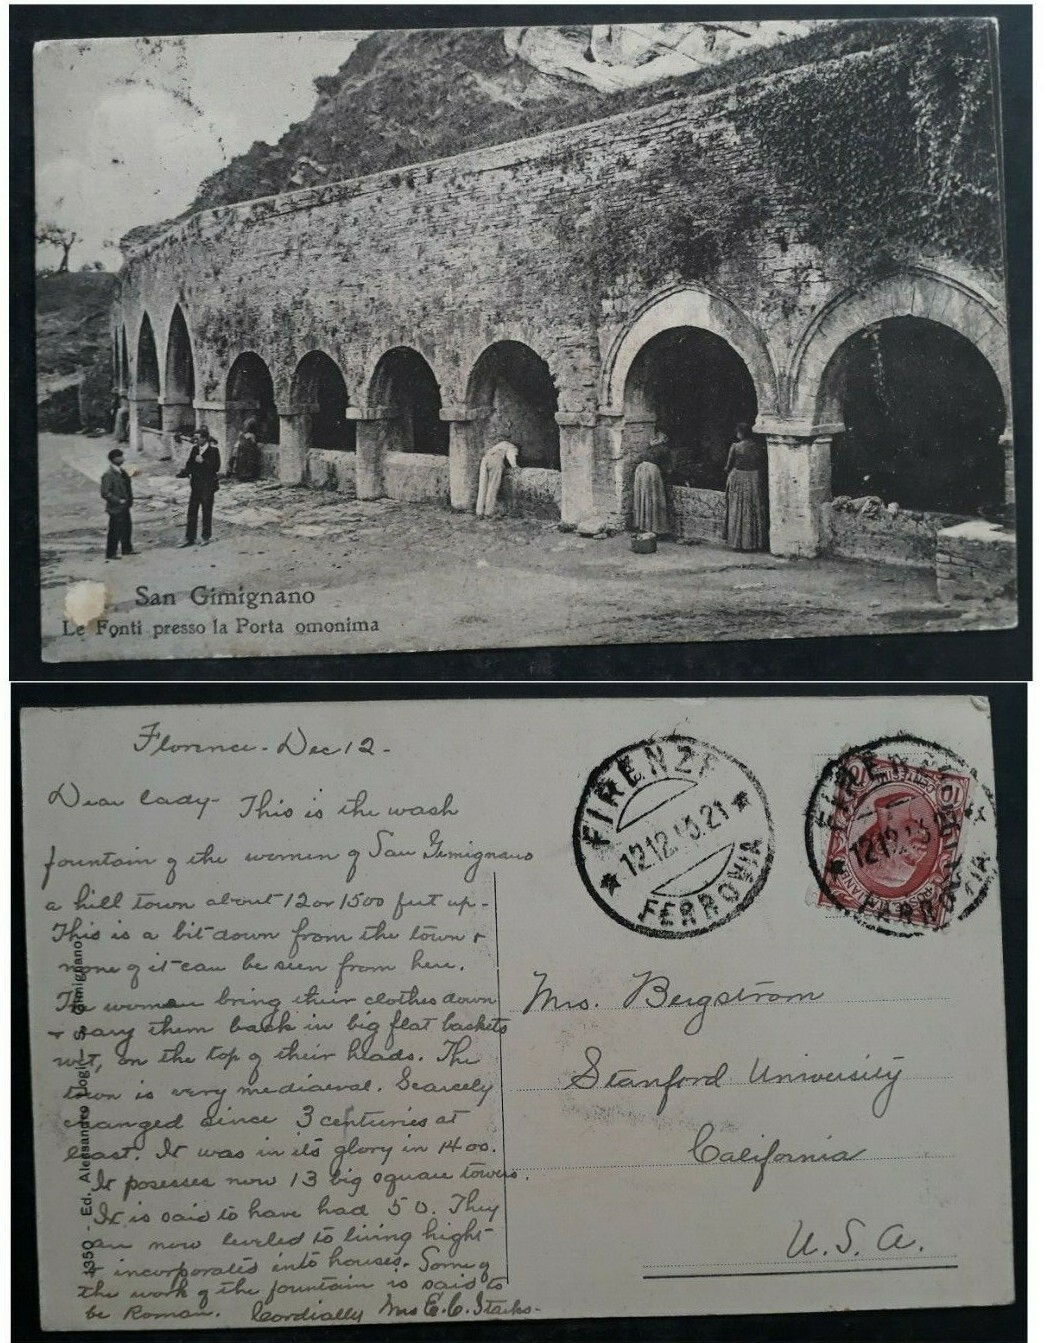 San Gimignano
Le Fonti presso la Porta omonima
Florence - Dec 12 -
Dear lady - This is the wash
fountain of the women of San Gimignano
a hill town about 12 or 1500 feet up -
This is a bit down from the town &
none of it can be seen from here.
The women bring their clothes down
& cary them back in big flat baskets
wet, on the top of their heads. The
town is very mediaeval. Scarcely
changed since 3 centuries at
least. It was in it's glory in 1400.
It posesses now 13 big square towers.
It is said to have had 50. They
are now leveled to living hight
& incorporated into houses. Some of
the work of the fountain is said to
be Roman. Cordially Mrs E. C. Starks -
4350 - Ed. Alessandro Logi - S. Gimignano
FIRENZE
12.12. 15.21
FERROVIA
FIRENZE
1212
FERROVIA
10
POSTE ITALIANE
Mrs. Bergström
Stanford University
California
U. S. A.